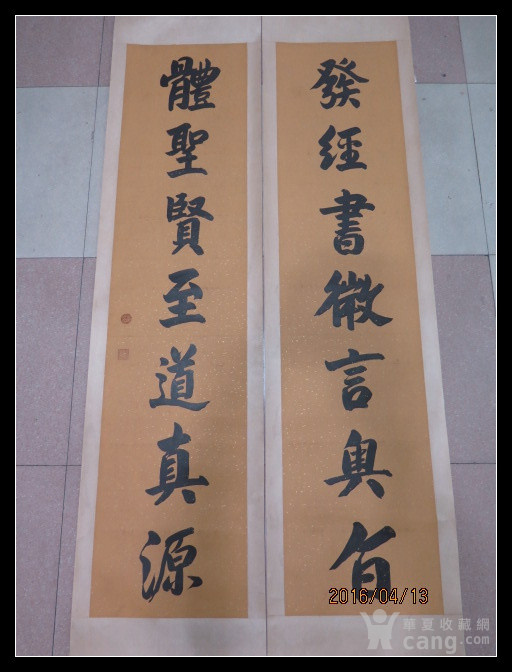 發經書微言奧旨
體聖賢至道真源
2016/04/13
華夏收藏網
cang.com